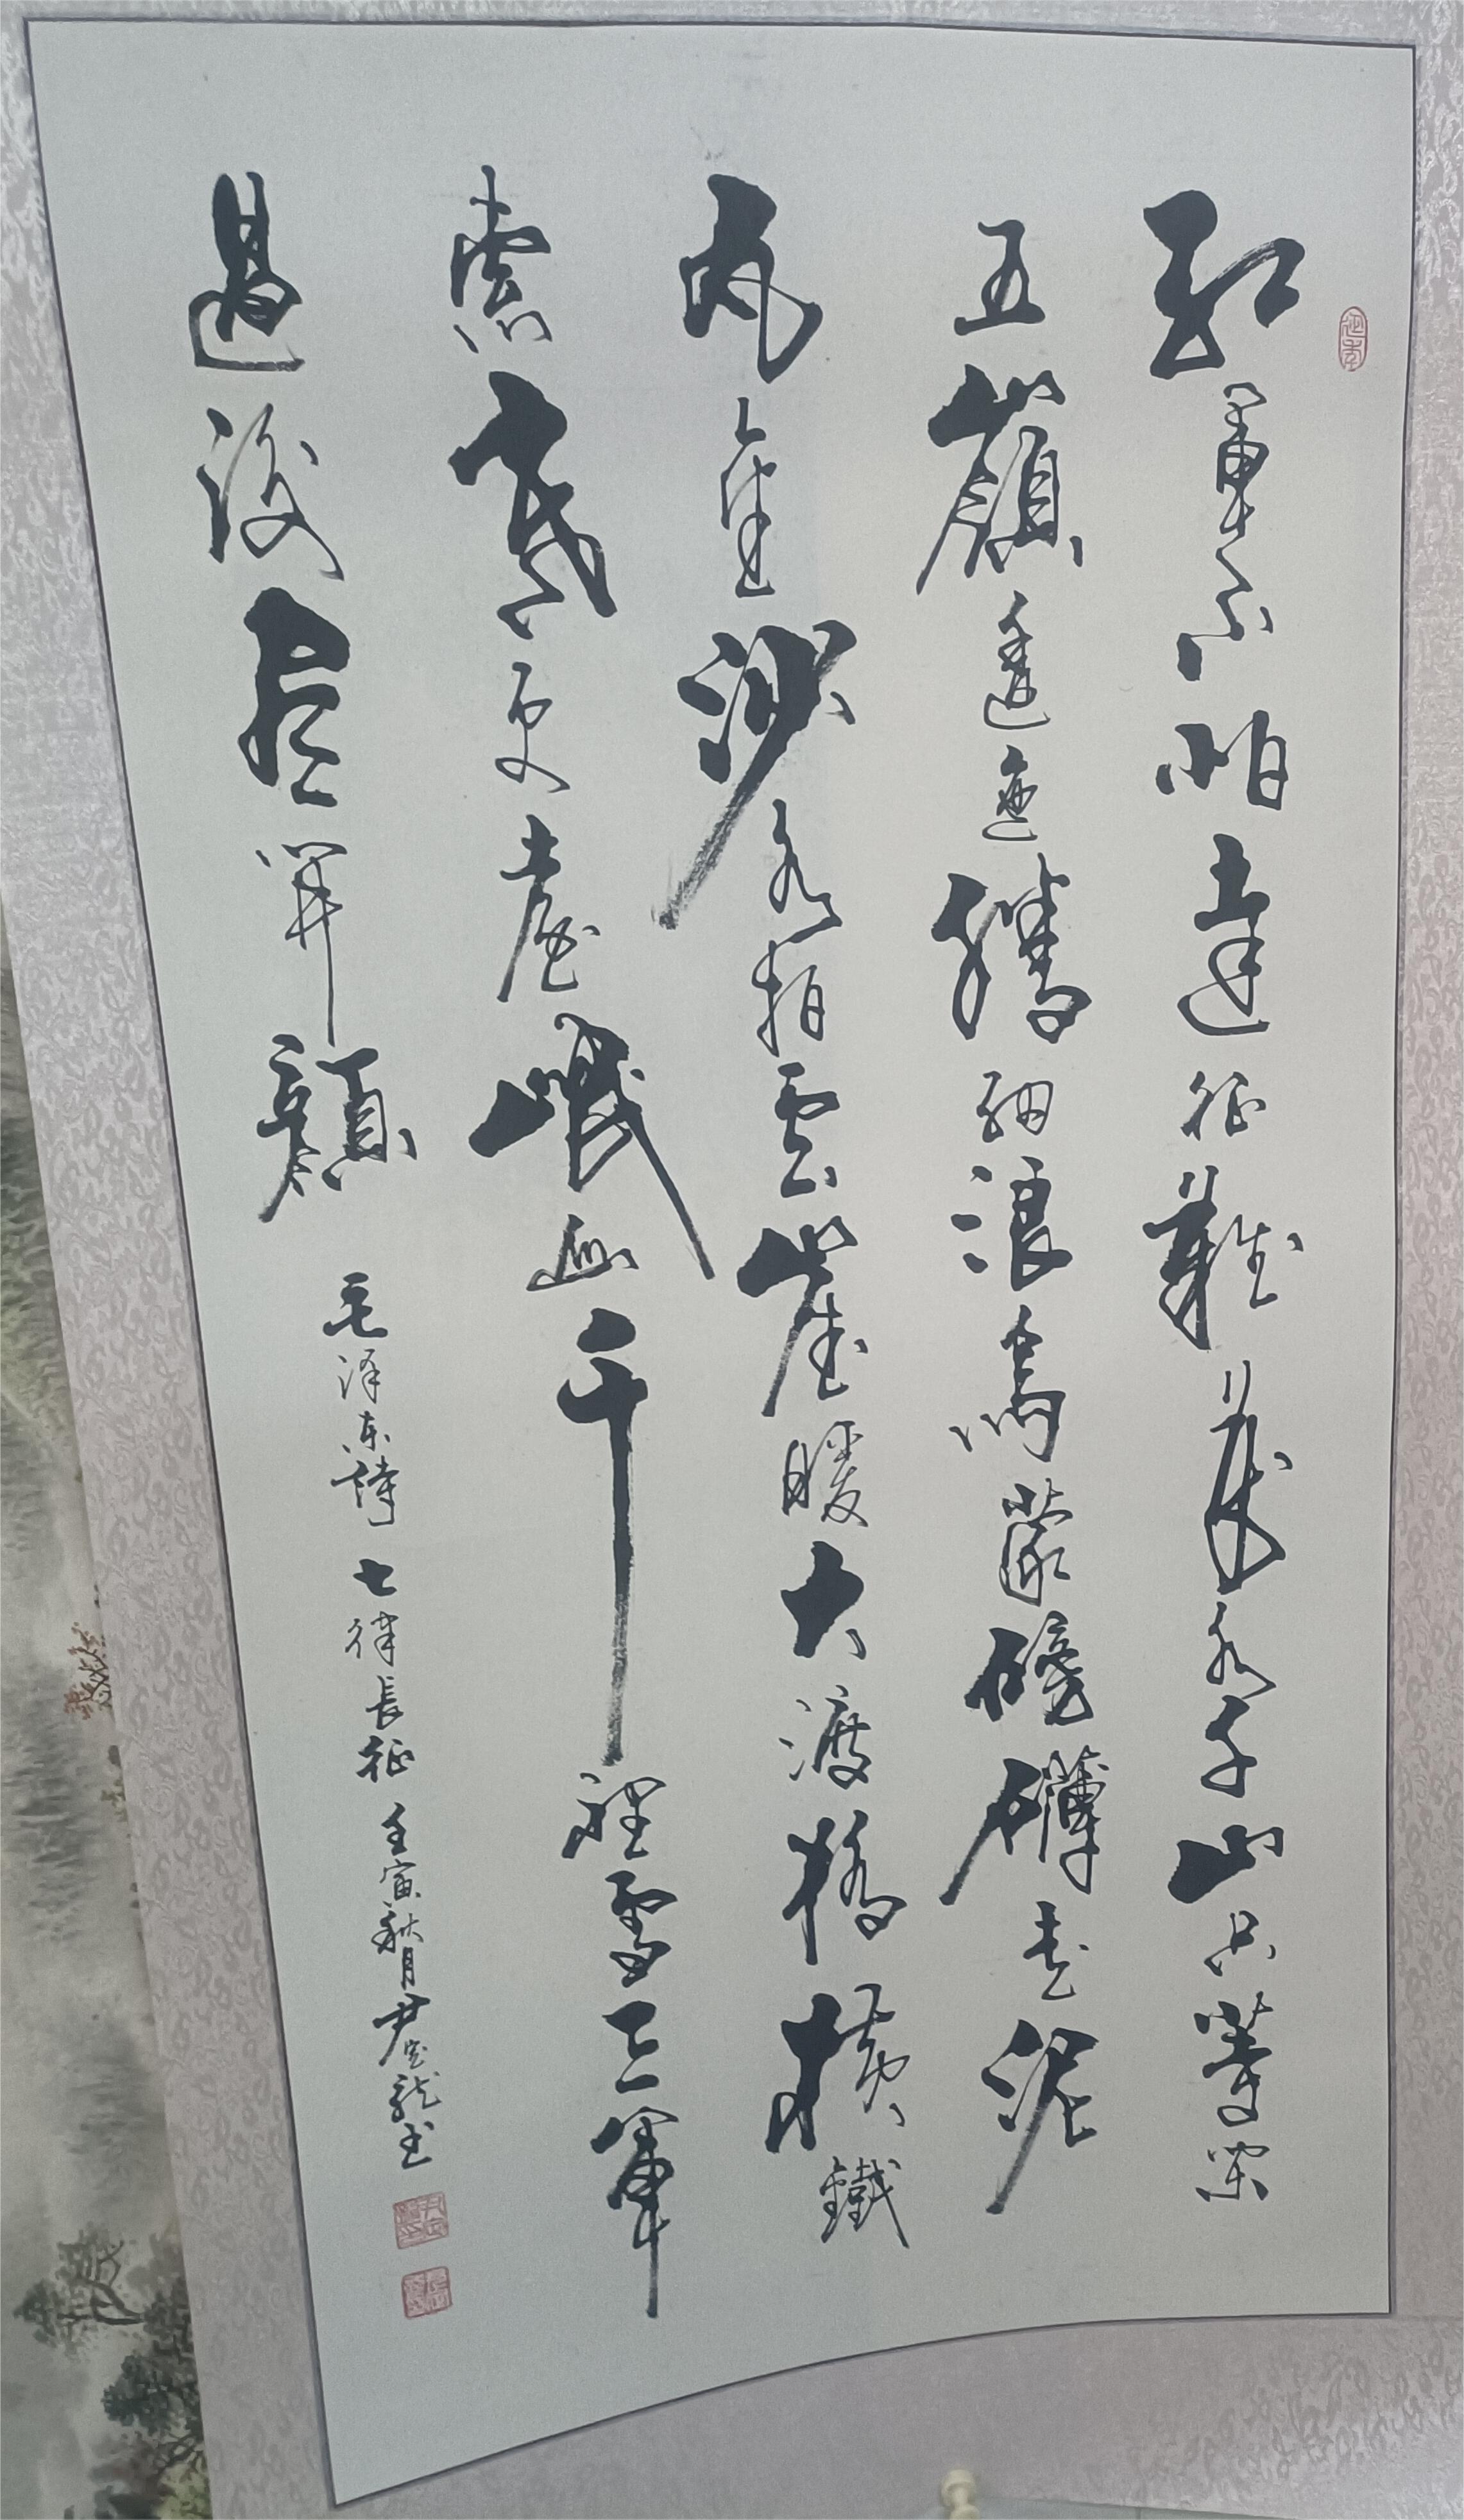 紅軍不怕遠征難萬水千山只等閑
五嶺逶迤騰細浪烏蒙磅礴走泥
丸金沙水拍雲崖暖大渡橋橫鐵
索寒更喜岷山千裡雪三軍
過後尽開顏
毛泽东詩 七律長征 壬寅秋月尹龍书